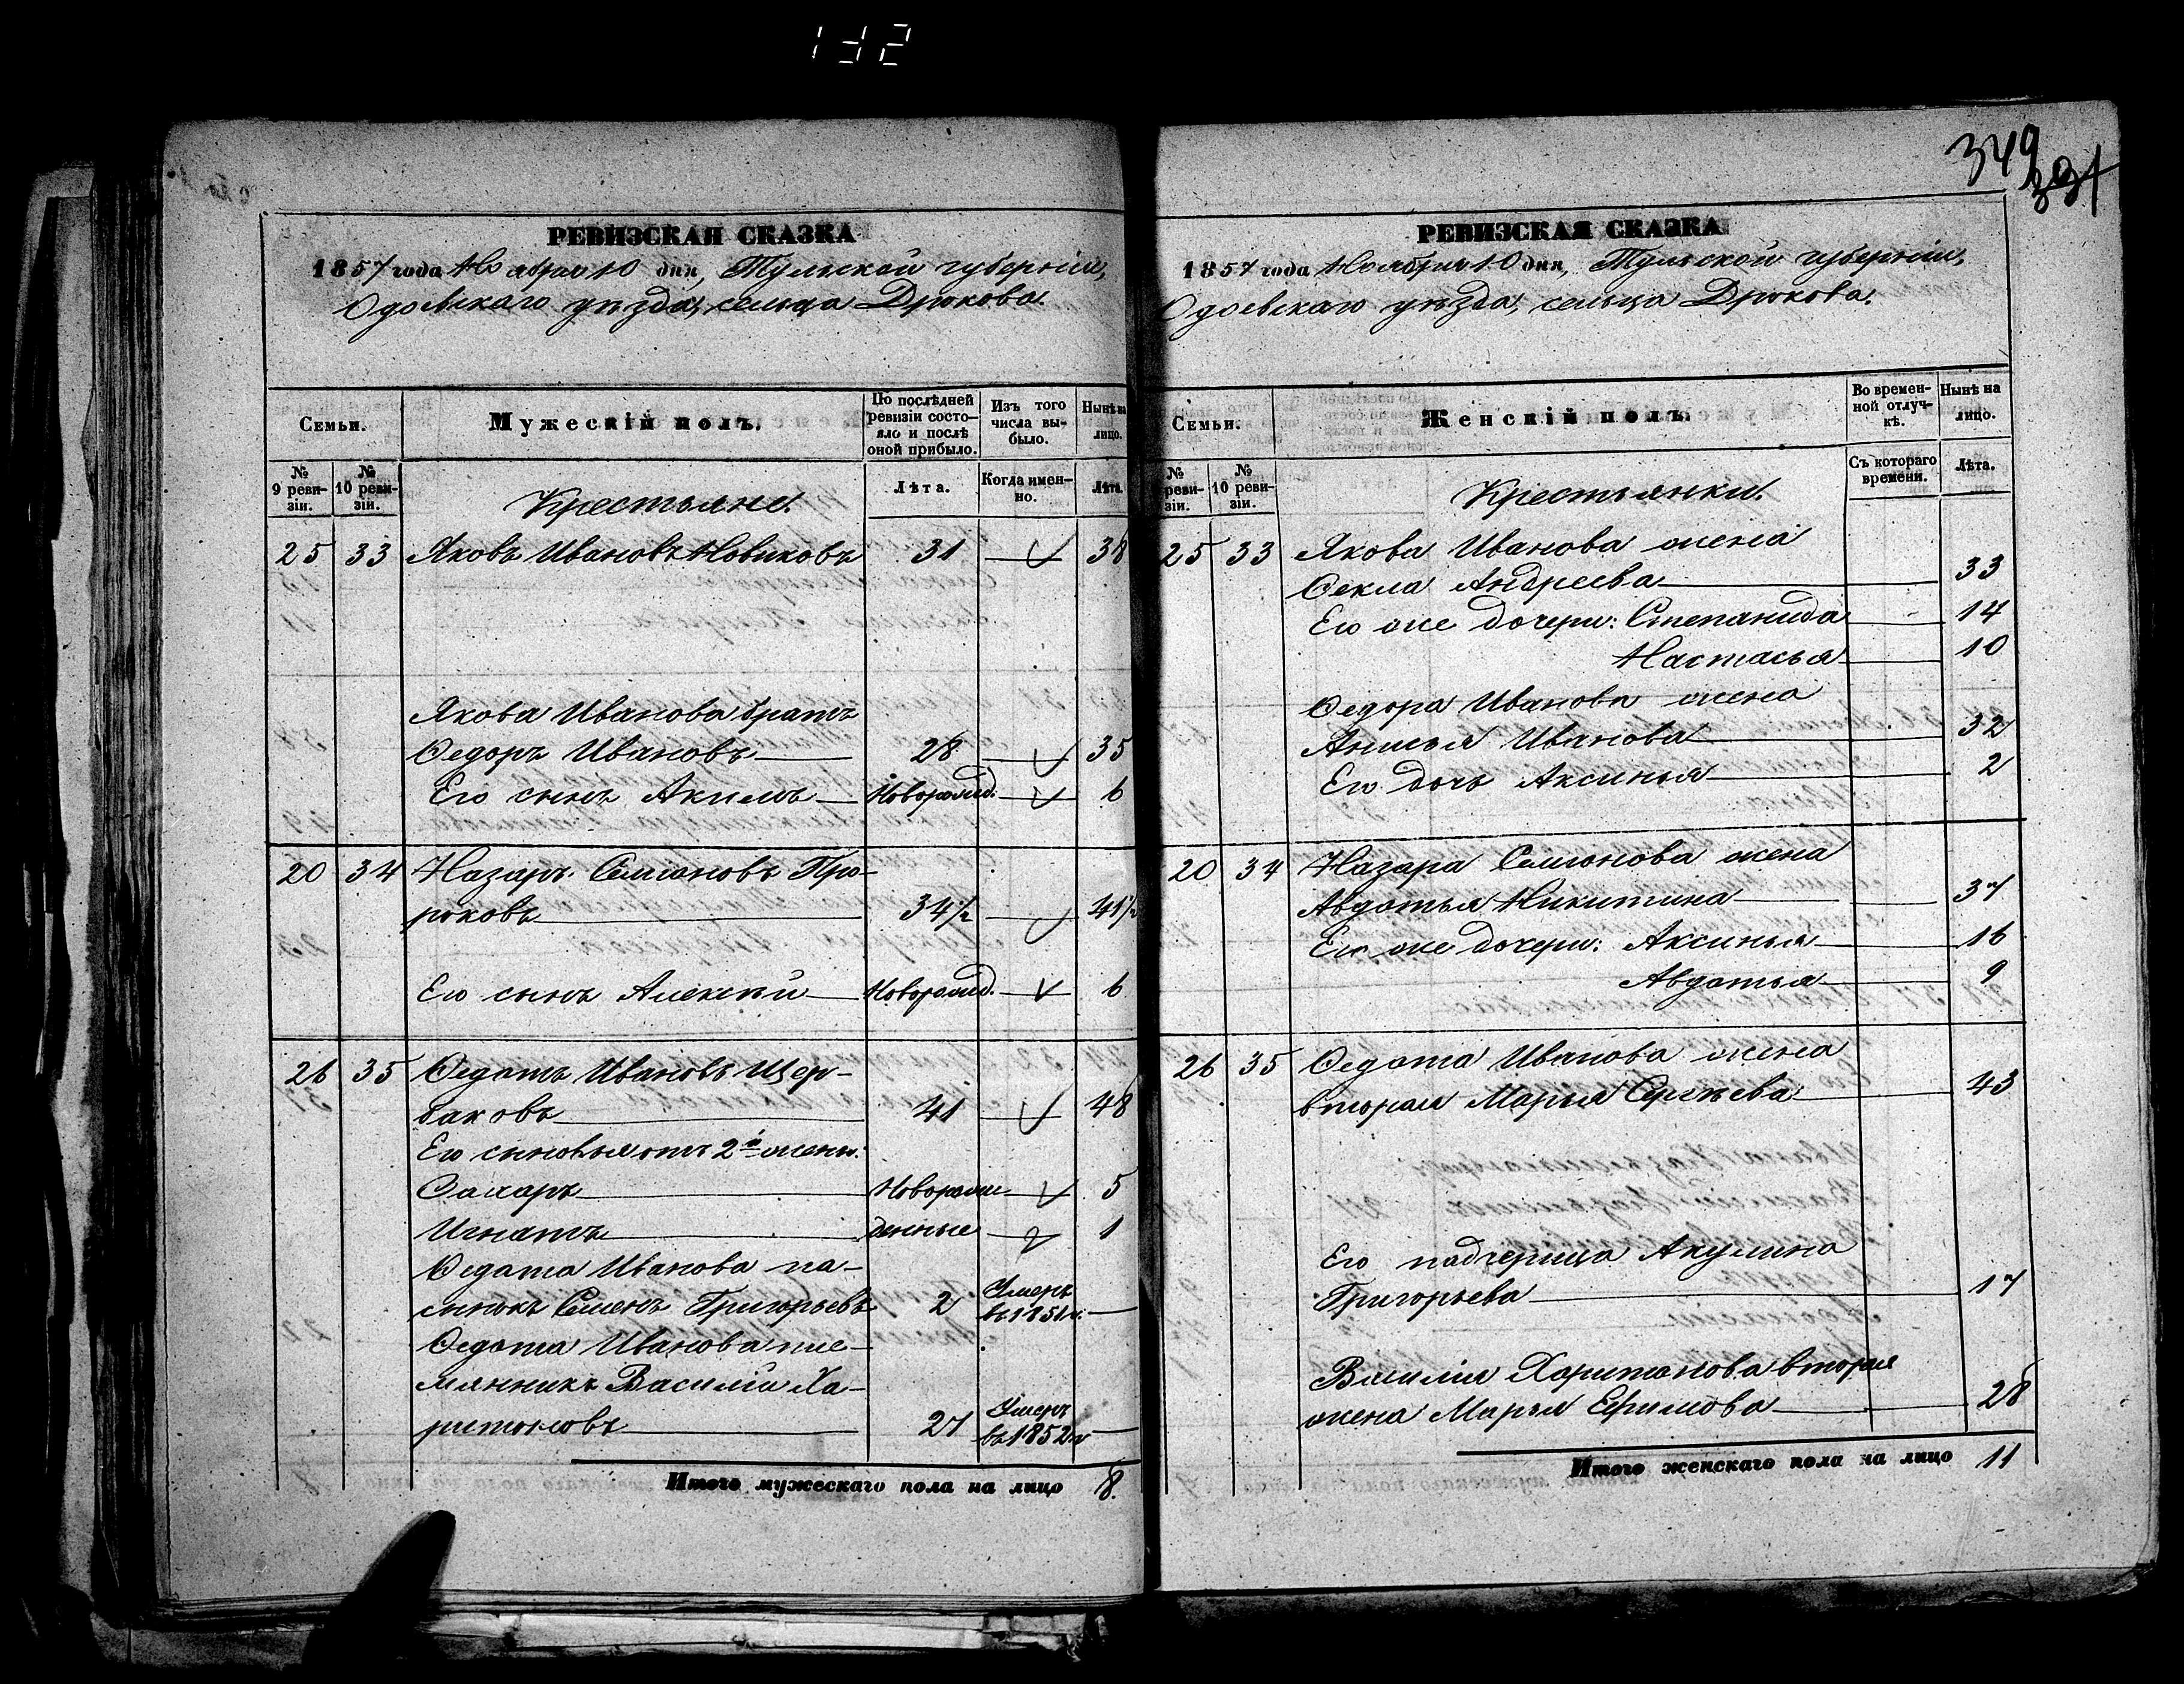 132
РЕВИЗСКАЯ СКАЗКА
1857 года Ноября 10 дня, Тульской губерніи,
Одоевскаго уѣзда, сельца Дрюкова.
Семьи.
Мужескій полъ.
По послѣдней ревизіи состо-
яло и послѣ оной прибыло.
Изъ того числа вы-
было.
Нынѣ на лицо.
№ 9 реви-
зіи.
№ 10 реви-
зіи.
Крестьяне.
Лѣта.
Когда имен-
но.
Лѣта.
25 33 Яковъ Ивановъ Новиковъ 31 38
Якова Иванова братъ
Ѳедоръ Ивановъ 28 35
Его сынъ Акимъ Новорожд. 6
20 34 Назаръ Семіоновъ Про-
роковъ 34½ 41½
Его сынъ Алексѣй Новорожд. 6
26 35 Ѳедотъ Ивановъ Щер-
баковъ 41 48
Его сыновья отъ 2й жены:
Захаръ Новорож- 5
Игнатъ денные 1
Ѳедота Иванова па-
сынокъ Семенъ Григорьевъ 2 Умеръ въ 1851 г.
Ѳедота Иванова пле-
мянникъ Василій Ха-
ритоновъ 27 Умеръ въ 1852 г.
Итого мужескаго пола на лицо 8.
349
РЕВИЗСКАЯ СКАЗКА
1857 года Ноября 10 дня, Тульской губерніи,
Одоевскаго уѣзда, сельца Дрюкова.
Семьи.
Женскій полъ.
Во времен-
ной отлуч-
кѣ.
Нынѣ на лицо.
№ реви-
зіи.
№ 10 реви-
зіи.
Крестьянки.
Съ котораго времени.
Лѣта.
25 33 Якова Иванова жена
Ѳекла Андреева 33
Его же дочери: Степанида 14
Настасья 10
Ѳедора Иванова жена
Анисья Иванова 32
Его дочь Аксинья 2
20 34 Назара Семіонова жена
Авдотья Никитина 37
Его же дочери: Аксинья 16
Авдотья 9
26 35 Ѳедота Иванова жена
вторая Марья Сергѣева 43
Его падчерица Акулина
Григорьева 17
Василія Харитонова вторая
жена Марья Ефимова 28
Итого женскаго пола на лицо 11